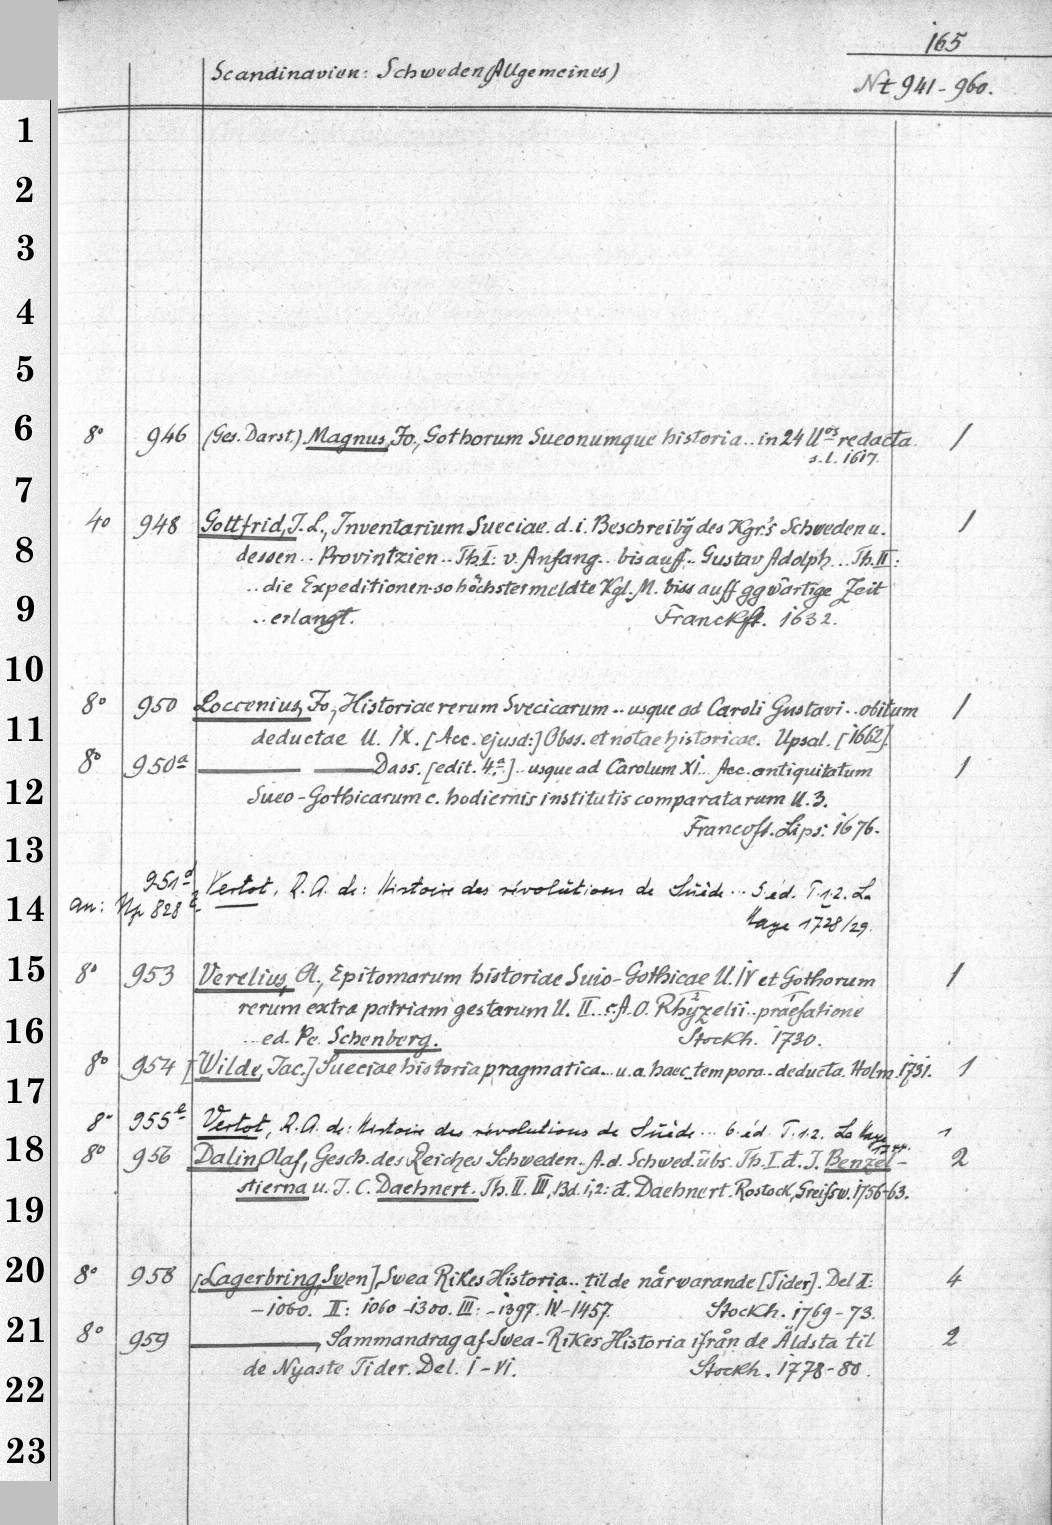 165
Scandinavien: Schweden (Allgemeines)
Nt 941-960.
1
2
3
4
5
6 8° 946 (Ges. Darst.) Magnus, Jo., Gothorum Sueonumque historia .. in 24 ll os redacta 1
s. l. 1617.
7
4° 948 Gottfrid, J. L., Inventarium Sueciae. d. i. Beschreibg des Kgr.'s Schweden u. 1
8 dessen .. Provintzien .. Th. I: v. Anfang .. bis auff .. Gustav Adolph ... Th. II:
.. die Expeditionen. so höchstermeldte Kgl. M. biss auff ggwärtige Zeit
9 .. erlangt. Franckft. 1632.
10
8° 950 Loccenius, Jo., Historiae rerum Svecicarum .. usque ad Caroli Gustavi .. obitum 1
11 deductae ll. IX. [Acc. ejusd:] Obss. et notae historicae. Upsal. [1662].
8° 950a Dass. [edit. 4.a] .. usque ad Carolum XI .. Acc. antiquitatum 1
12 Sueo-Gothicarum c. hodiernis institutis comparatarum ll. 3.
Francoft. Lips: 1676.
13
951d Vertot, R. A. de: Histoire des révolutions de Suède ... 5. éd. T. 1.2. La
14 an: Np 828 Haye 1728/29.
15 8° 953 Verelius, Ol., Epitomarum historiae Suio-Gothicae ll. IV et Gothorum 1
rerum extra patriam gestarum ll. II .. c. A. O. Rhyzelii .. praefatione
16 ... ed. Pe. Schenberg. Stockh. 1730.
8° 954 [Wilde, Jac.] Sueciae historia pragmatica .. u. a. haec tempora .. deducta. Holm. 1731. 1
17
8° 955e Vertot, R. A. de: Histoire des révolutions de Suède ... 6. éd. T. 1.2. La Haye 1
18 8° 956 Dalin, Olaf, Gesch. des Reiches Schweden. A. d. Schwed. übs. Th. I d. J. Benzel- 2
stierna u. J. C. Daehnert. Th. II. III, Bd. 1, 2: d. Daehnert. Rostock, Greifsw. 1756-63.
19
20 8° 958 [Lagerbring, Swen], Swea Rikes Historia .. til de närwarande [Tider]. Del I: 4
-1060. II: 1060-1300. III: -1397. IV-1457. Stockh. 1769-73.
21 8° 959 , Sammandrag af Swea-Rikes Historia ifrån de Äldsta til 2
de Nyaste Tider. Del. I-VI. Stockh. 1778-80.
22
23